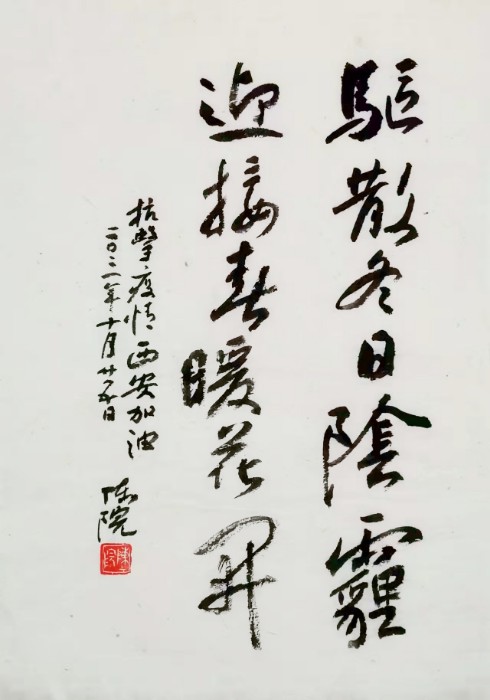 驅散冬日陰霾
迎接春暖花開
抗擊疫情西安加油
二〇二一年十月廿五日
陈院